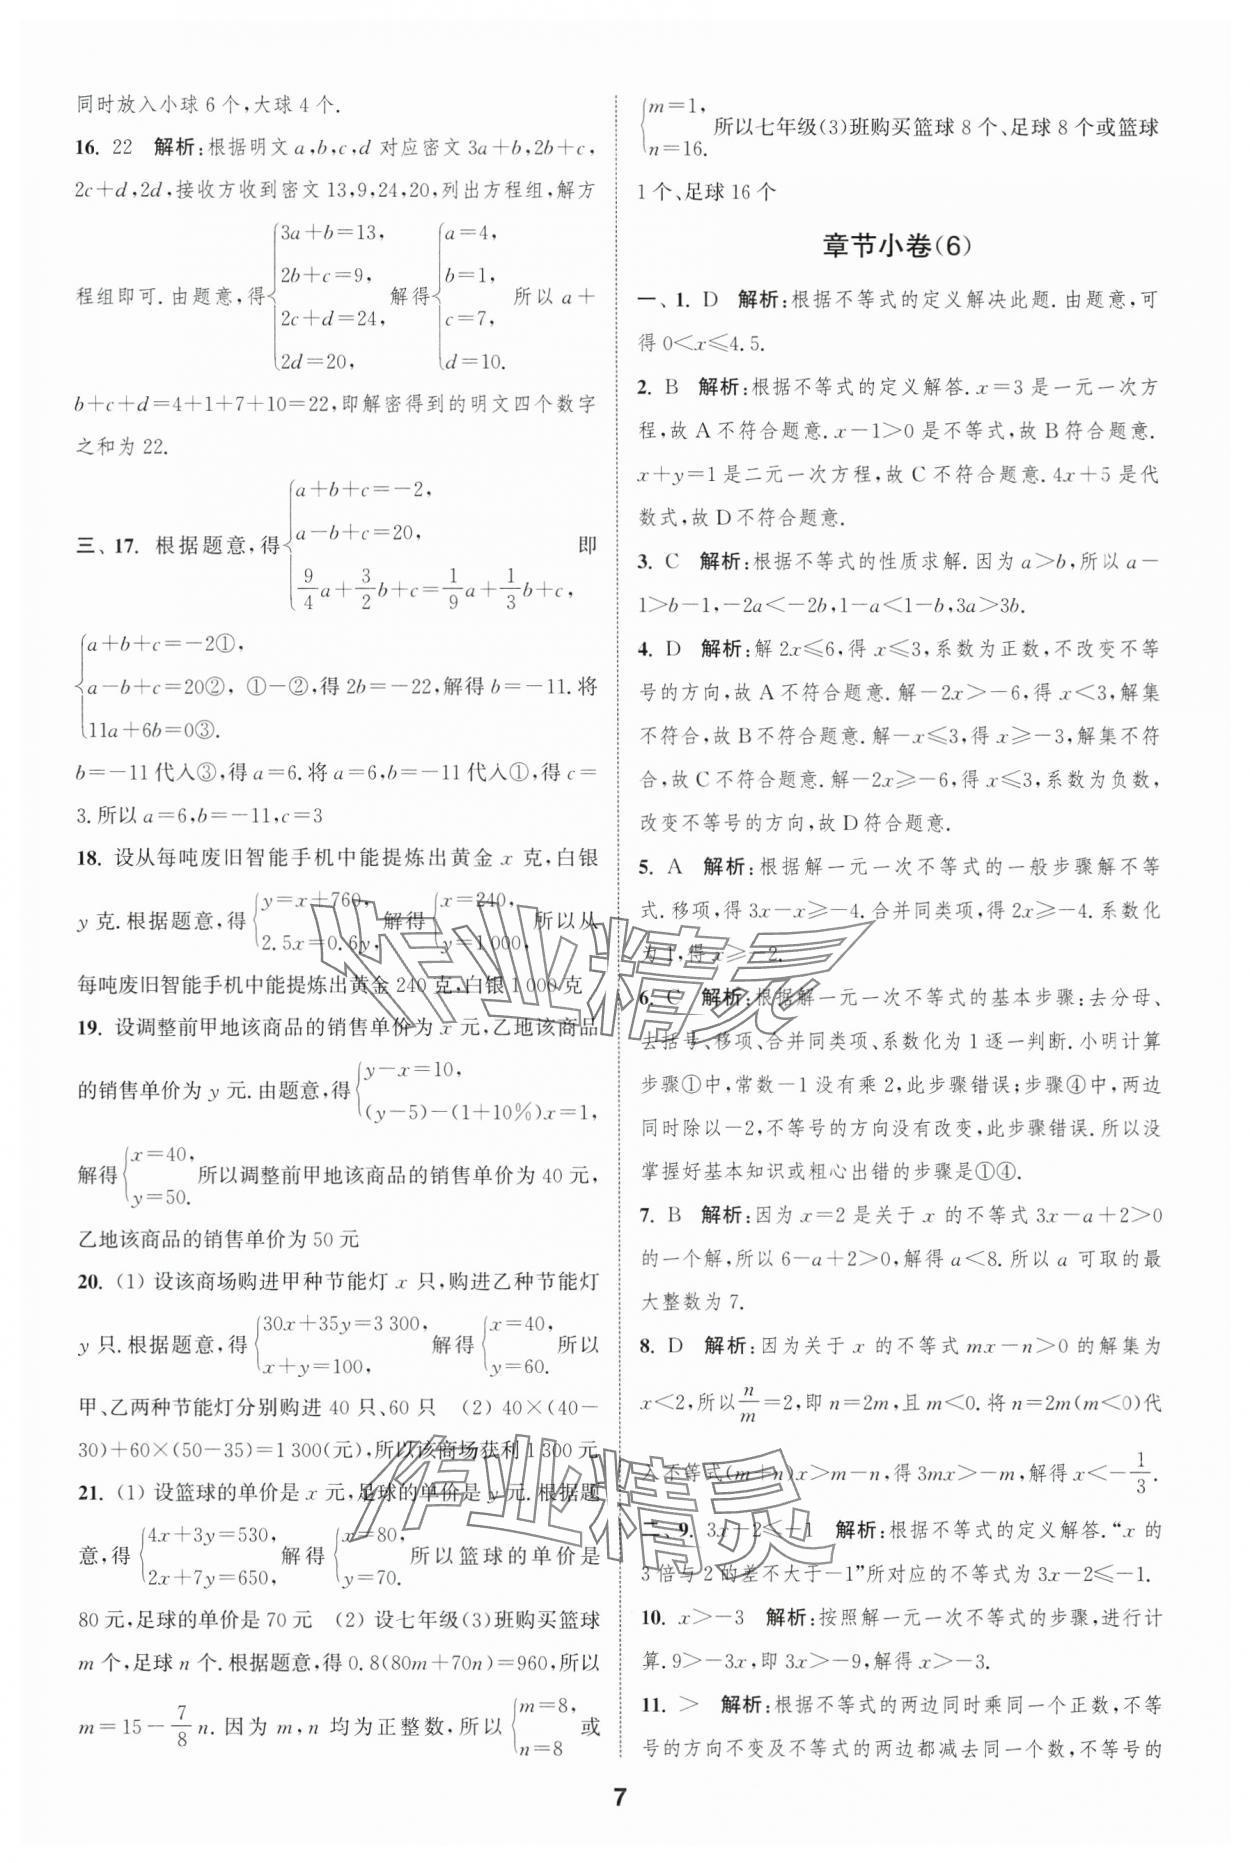 同时放入小球 6 个,大球 4 个.
16. 22 解析:根据明文 a,b,c,d 对应密文 3a+b,2b+c,
2c+d,2d,接收方收到密文 13,9,24,20,列出方程组,解方
程组即可.由题意,得{3a+b=13, 2b+c=9, 2c+d=24, 2d=20, 解得{a=4, b=1, c=7, d=10. 所以 a+
b+c+d=4+1+7+10=22,即解密得到的明文四个数字
之和为 22.
三、17. 根据题意,得{a+b+c=-2, a-b+c=20, 9/4a+3/2b+c=1/9a+1/3b+c, 即
{a+b+c=-2①, a-b+c=20②, 11a+6b=0③. ①-②,得 2b=-22,解得 b=-11.将
b=-11 代入③,得 a=6.将 a=6,b=-11 代入①,得 c=
3.所以 a=6,b=-11,c=3
18. 设从每吨废旧智能手机中能提炼出黄金 x 克,白银
y 克.根据题意,得{y=x+760, 2.5x=0.6y, 解得{x=240, y=1 000, 所以从
每吨废旧智能手机中能提炼出黄金 240 克,白银 1 000 克
19. 设调整前甲地该商品的销售单价为 x 元,乙地该商品
的销售单价为 y 元.由题意,得{y-x=10, (y-5)-(1+10%)x=1,
解得{x=40, y=50. 所以调整前甲地该商品的销售单价为 40 元,
乙地该商品的销售单价为 50 元
20. (1) 设该商场购进甲种节能灯 x 只,购进乙种节能灯
y 只.根据题意,得{30x+35y=3 300, x+y=100, 解得{x=40, y=60. 所以
甲、乙两种节能灯分别购进 40 只、60 只 (2) 40×(40-
30)+60×(50-35)=1 300(元),所以该商场获利 1 300 元
21. (1) 设篮球的单价是 x 元,足球的单价是 y 元.根据题
意,得{4x+3y=530, 2x+7y=650, 解得{x=80, y=70. 所以篮球的单价是
80 元,足球的单价是 70 元 (2) 设七年级(3)班购买篮球
m 个,足球 n 个.根据题意,得 0.8(80m+70n)=960,所以
m=15-7/8n.因为 m,n 均为正整数,所以{m=8, n=8 或
{m=1, n=16. 所以七年级(3)班购买篮球 8 个、足球 8 个或篮球
1 个、足球 16 个
章节小卷(6)
一、1. D 解析:根据不等式的定义解决此题.由题意,可
得 0<x≤4.5.
2. B 解析:根据不等式的定义解答.x=3 是一元一次方
程,故 A 不符合题意.x-1>0 是不等式,故 B 符合题意.
x+y=1 是二元一次方程,故 C 不符合题意.4x+5 是代
数式,故 D 不符合题意.
3. C 解析:根据不等式的性质求解.因为 a>b,所以 a-
1>b-1,-2a<-2b,1-a<1-b,3a>3b.
4. D 解析:解 2x≤6,得 x≤3,系数为正数,不改变不等
号的方向,故 A 不符合题意.解-2x>-6,得 x<3,解集
不符合,故 B 不符合题意.解-x≤3,得 x≥-3,解集不符
合,故 C 不符合题意.解-2x≥-6,得 x≤3,系数为负数,
改变不等号的方向,故 D 符合题意.
5. A 解析:根据解一元一次不等式的一般步骤解不等
式.移项,得 3x-x≥-4.合并同类项,得 2x≥-4.系数化
为 1,得 x≥-2.
6. C 解析:根据解一元一次不等式的基本步骤:去分母、
去括号、移项、合并同类项、系数化为 1 逐一判断.小明计算
步骤①中,常数-1 没有乘 2,此步骤错误;步骤④中,两边
同时除以-2,不等号的方向没有改变,此步骤错误.所以没
掌握好基本知识或粗心出错的步骤是①④.
7. B 解析:因为 x=2 是关于 x 的不等式 3x-a+2>0
的一个解,所以 6-a+2>0,解得 a<8.所以 a 可取的最
大整数为 7.
8. D 解析:因为关于 x 的不等式 mx-n>0 的解集为
x<2,所以n/m=2,即 n=2m,且 m<0.将 n=2m(m<0)代
入不等式(m+n)x>m-n,得 3mx>-m,解得 x<-1/3.
二、9. 3x-2≤-1 解析:根据不等式的定义解答.“x 的
3 倍与 2 的差不大于-1”所对应的不等式为 3x-2≤-1.
10. x>-3 解析:按照解一元一次不等式的步骤,进行计
算.9>-3x,即 3x>-9,解得 x>-3.
11. > 解析:根据不等式的两边同时乘同一个正数,不等
号的方向不变及不等式的两边都减去同一个数,不等号的
7
作业精灵
作业精灵